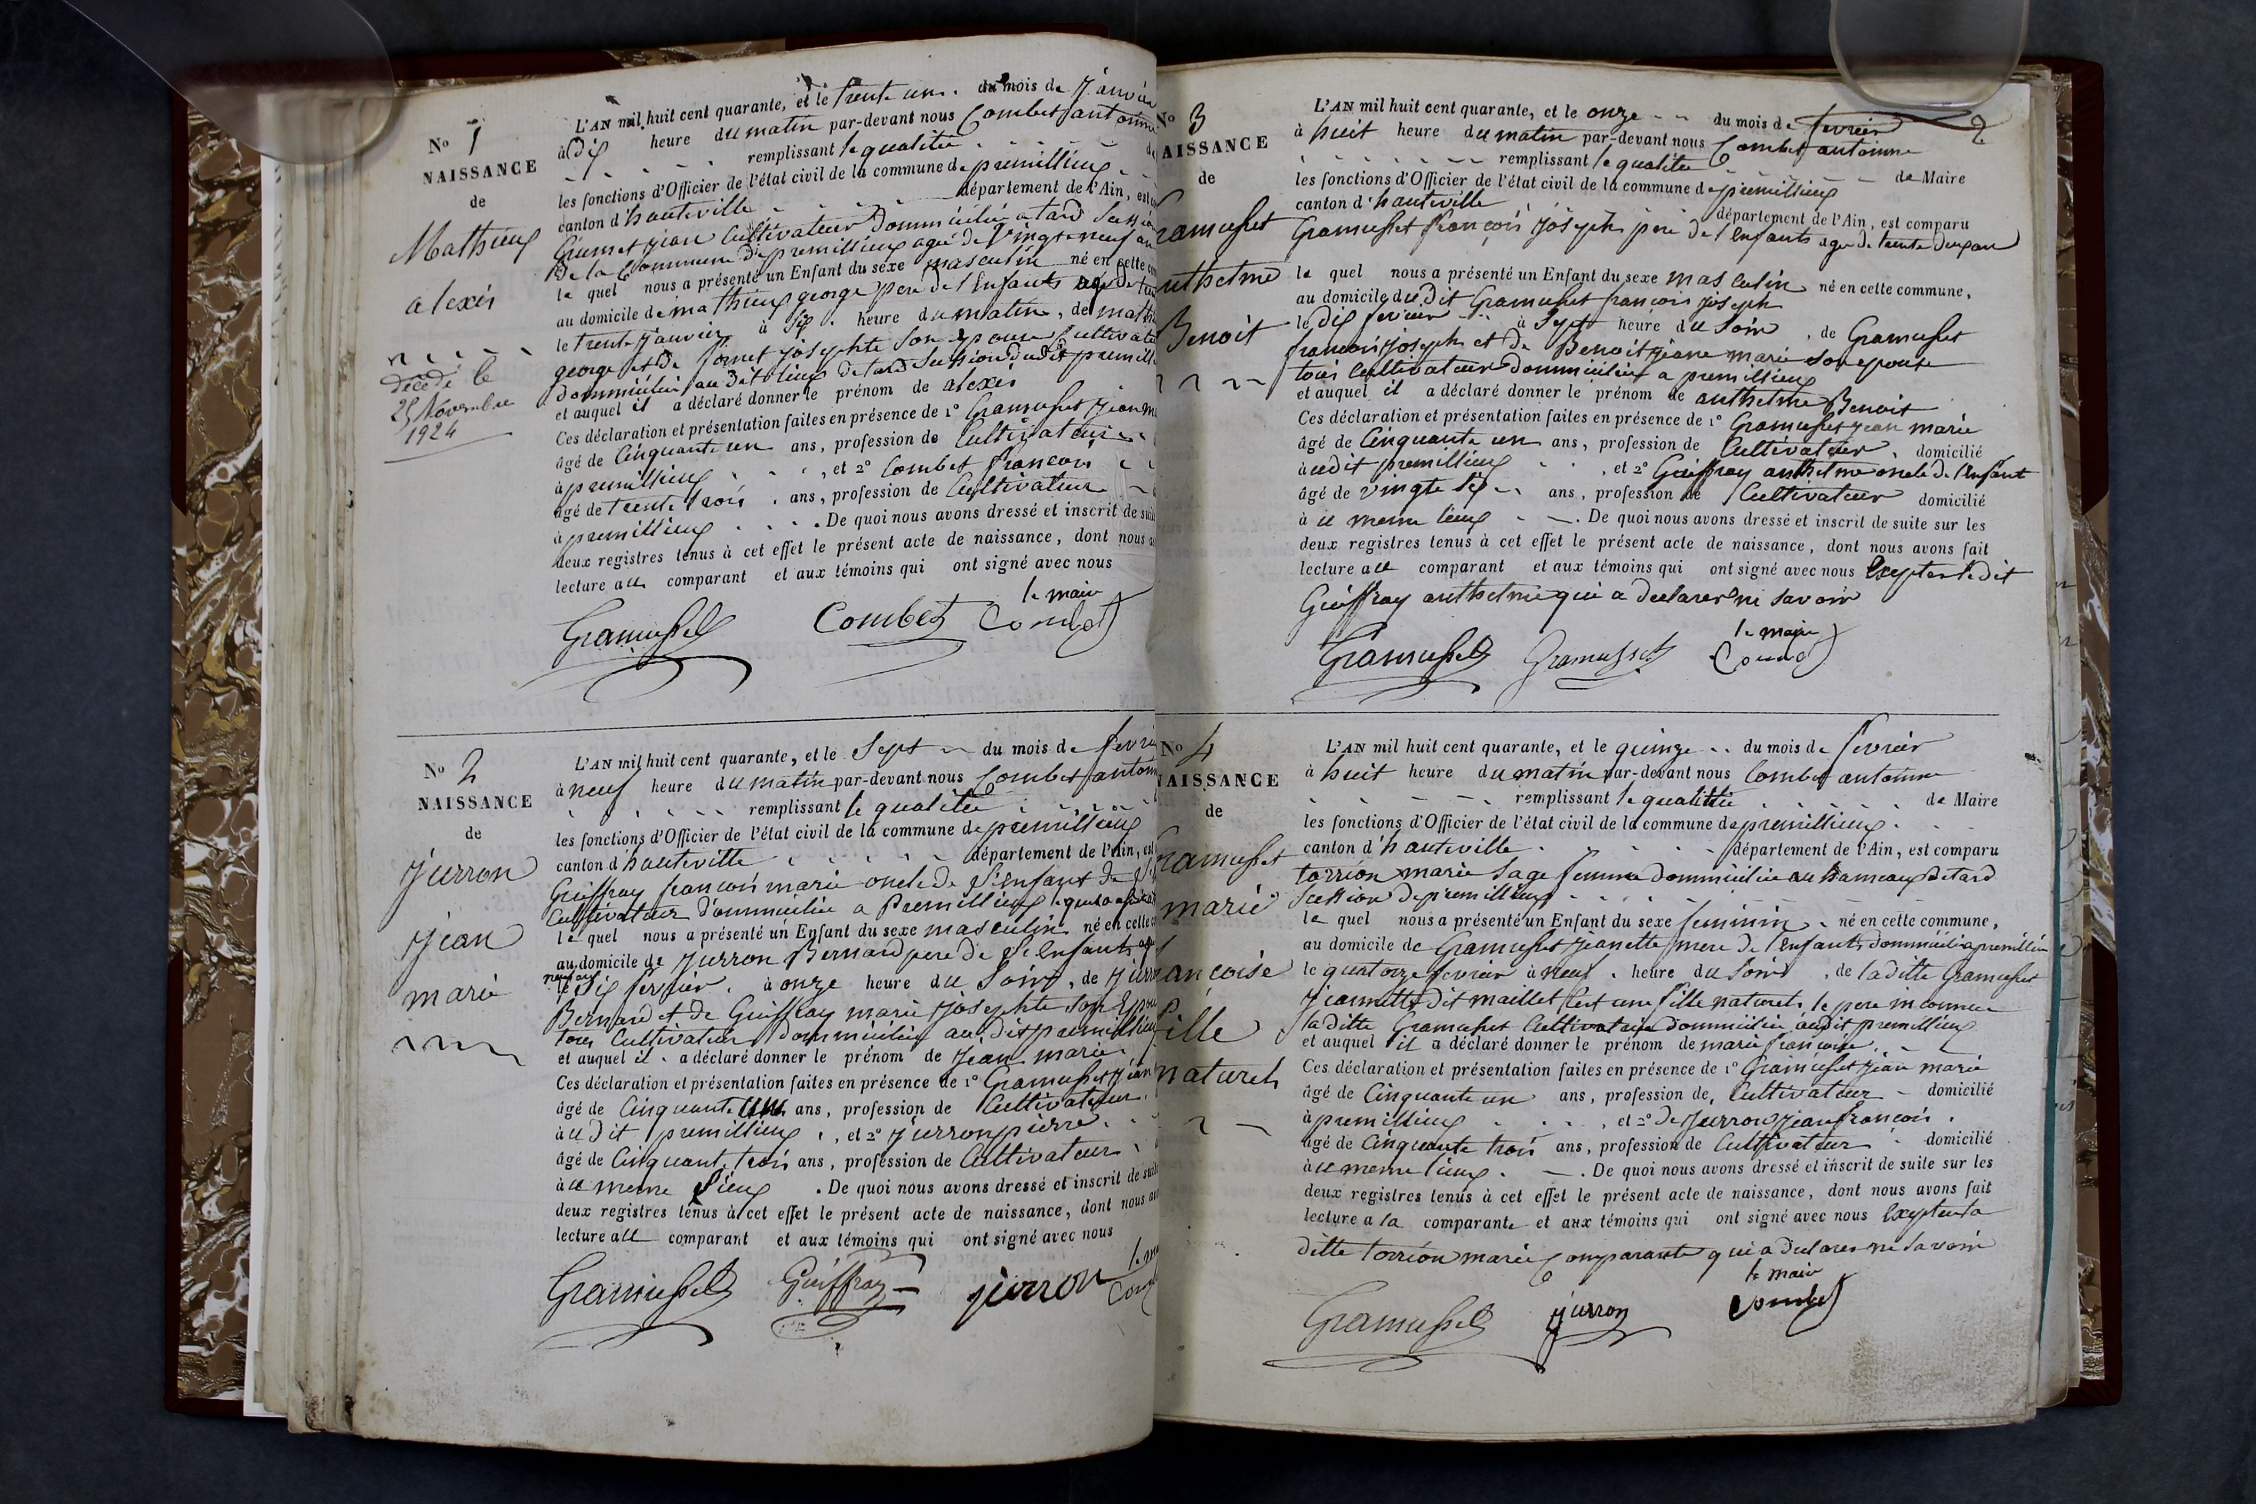 No 1
NAISSANCE
de
Mathieux
alexis
décédé le
25 Novembre
1924
L'AN mil huit cent quarante, et le trente un . du mois de janvier
à dix heure du matin par-devant nous Combet antoinne
remplissant le qualitée de
les fonctions d'Officier de l'état civil de la commune de premillieux
canton d'hauteville département de l'Ain, est
jean Cultivateur dommicilie a tard
de la Commune de premillieux agé de vingt neuf an
le quel nous a présenté un Enfant du sexe masculin né en cette
au domicile de mathieux george pere de l'enfants agé de
le trente janvier à six . heure du matin , de
george et de josephte son epouse Cultivate
dommicilie au dit lieux de tard
et auquel il a déclaré donner le prénom de alexis
Ces déclaration et présentation faites en présence de 1º Gramusset jean
âgé de Cinquante un ans, profession de Cultivateur
à premillieux , et 2º Combet francois
âgé de trente trois . ans, profession de Cultivateur
à premillieux . De quoi nous avons dressé et inscrit de
deux registres tenus à cet effet le présent acte de naissance, dont nous
lecture au comparant et aux témoins qui ont signé avec nous
le maire
Gramusset Combet Combet
No 2
NAISSANCE
de
jurron
jean
marie
L'AN mil huit cent quarante, et le Sept du mois de
à neuf heure du matin par-devant nous Combet
remplissant le qualitée
les fonctions d'Officier de l'état civil de la commune de premillieux
canton d'hauteville département de l'Ain, est
Guiffray francois marie oncle de l'enfant de
Cultivateur dommicilie a Premillieux
le quel nous a présenté un Enfant du sexe masculin né en cette
au domicile de jurron Bernard pere de l'enfants
le six fevrier . à onze heure du soir , de
Bernard et de Guiffray marie josephte son
tous Cultivateur dommicilie au dit premillieux
et auquel il a déclaré donner le prénom de jean marie
Ces déclaration et présentation faites en présence de 1º Gramusset jean
âgé de Cinquante un ans, profession de Cultivateur
à u dit premillieux , et 2º jurron pierre
âgé de Cinquant trois ans, profession de Cultivateur
à u meme lieux . De quoi nous avons dressé et inscrit de
deux registres tenus à cet effet le présent acte de naissance, dont nous
lecture au comparant et aux témoins qui ont signé avec nous
Gramusset Guiffray jurron
2
No 3
AISSANCE
de
ramusset
nthelme
Benoit
L'AN mil huit cent quarante, et le onze du mois de fevrier
à huit heure du matin par-devant nous Combet antoinne
remplissant le qualitée de Maire
les fonctions d'Officier de l'état civil de la commune de premillieux
canton d'hauteville département de l'Ain, est comparu
Gramusset francois joseph pere de l'enfants age de trente deux an
le quel nous a présenté un Enfant du sexe masculin né en cette commune,
au domicile du dit Gramusset francois joseph
le dix fevrier à sept heure du soir , de Gramusset
francois joseph et de Benoit jeane marie son epouse
tous Cultivateur dommicilie a premillieux
et auquel il a déclaré donner le prénom de anthelme Benoit
Ces déclaration et présentation faites en présence de 1º Gramusset jean marie
âgé de Cinquante un ans, profession de Cultivateur , domicilié
à udit premillieux , et 2º Guiffray anthelme oncle de l'enfant
âgé de vingte six ans, profession de Cultivateur domicilié
à u meme lieux . De quoi nous avons dressé et inscrit de suite sur les
deux registres tenus à cet effet le présent acte de naissance, dont nous avons fait
lecture au comparant et aux témoins qui ont signé avec nous Excepter le dit
Guiffray anthelme qui a declarer ne savoir
le maire
Gramusset Gramusset Combet
No 4
NAISSANCE
de
ramusset
marie
ancoise
fille
naturels
L'AN mil huit cent quarante, et le quinze du mois de fevrier
à huit heure du matin par-devant nous Combet antoinne
remplissant le qualittée de Maire
les fonctions d'Officier de l'état civil de la commune de premillieux
canton d'hauteville département de l'Ain, est comparu
torrion marie sage femme dommicilie au hameaux de tard
section de premillieux
le quel nous a présenté un Enfant du sexe feminin né en cette commune,
au domicile de Gramusset jeanette mere de l'enfants dommicilie a premillieux
le quatorze fevrier à neuf . heure du soir , de la ditte Gramusset
jeannette dit maillet c'est une fille naturels le pere inconnue
la ditte Gramusset Cultivateur dommicilie audit premillieux
et auquel il a déclaré donner le prénom de marie francoise
Ces déclaration et présentation faites en présence de 1º Gramusset jean marie
âgé de Cinquante un ans, profession de Cultivateur domicilié
à premillieux , et 2º de jurron jean francois .
âgé de Cinquante trois ans, profession de Cultivateur domicilié
à u meme lieux . De quoi nous avons dressé et inscrit de suite sur les
deux registres tenus à cet effet le présent acte de naissance, dont nous avons fait
lecture a la comparante et aux témoins qui ont signé avec nous Excepter la
ditte torrion marie Comparante qui a declarer ne savoir
le maire
Gramusset jurron Combet